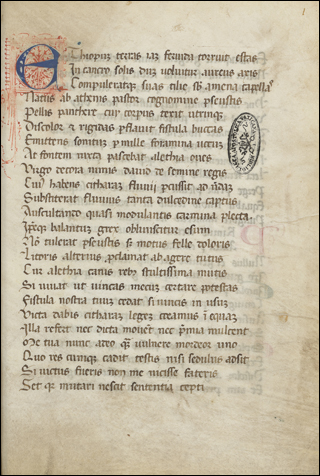 Ethiopum terras iaz feruida torruit estas
In cancro solis dum voluitur aureus axis
Compuleratqz suas tilie sb amena capellas
Natus ab athenis pastor cognomine pseustis
Pellis panthere cui corpus texit utrinqz
Discolor et rigidas pflauit fistula buccas
Emittens sonituz p mille foramina vocum
At fontem iuxta pascebat alethia oues
Virgo decora nimis dauid de semine regis
Cuiꝰ habens citharaz fluuij pcussit ad
Substiterat fluuius tanta dulcedine captus
Auscultando quasi modulantis carmina plectri
Ipseqz balantuz grex obliuiscitur esum
Nō tulerat pseustis sz motus felle doloris
Litoris alterius pclamat ab agere tutus
Cur alethia canis rebꝫ stultissima mutis
Si iuuat ut uincas mecuz certare potestas
Fistula nostra tuuz cedat si uincis in usuz
Victa dabis citharaz legez creamus ī equaz
Illa refert nec dicta mouēt nec pmia mulcent
Me tua nunc adeo qm vulnere mordeor uno
Quo res cumqz cadit testis nisi sedulus adsit
Si uictus fueris non me uicisse fateris
Set qz mutari nescit sententia cepti